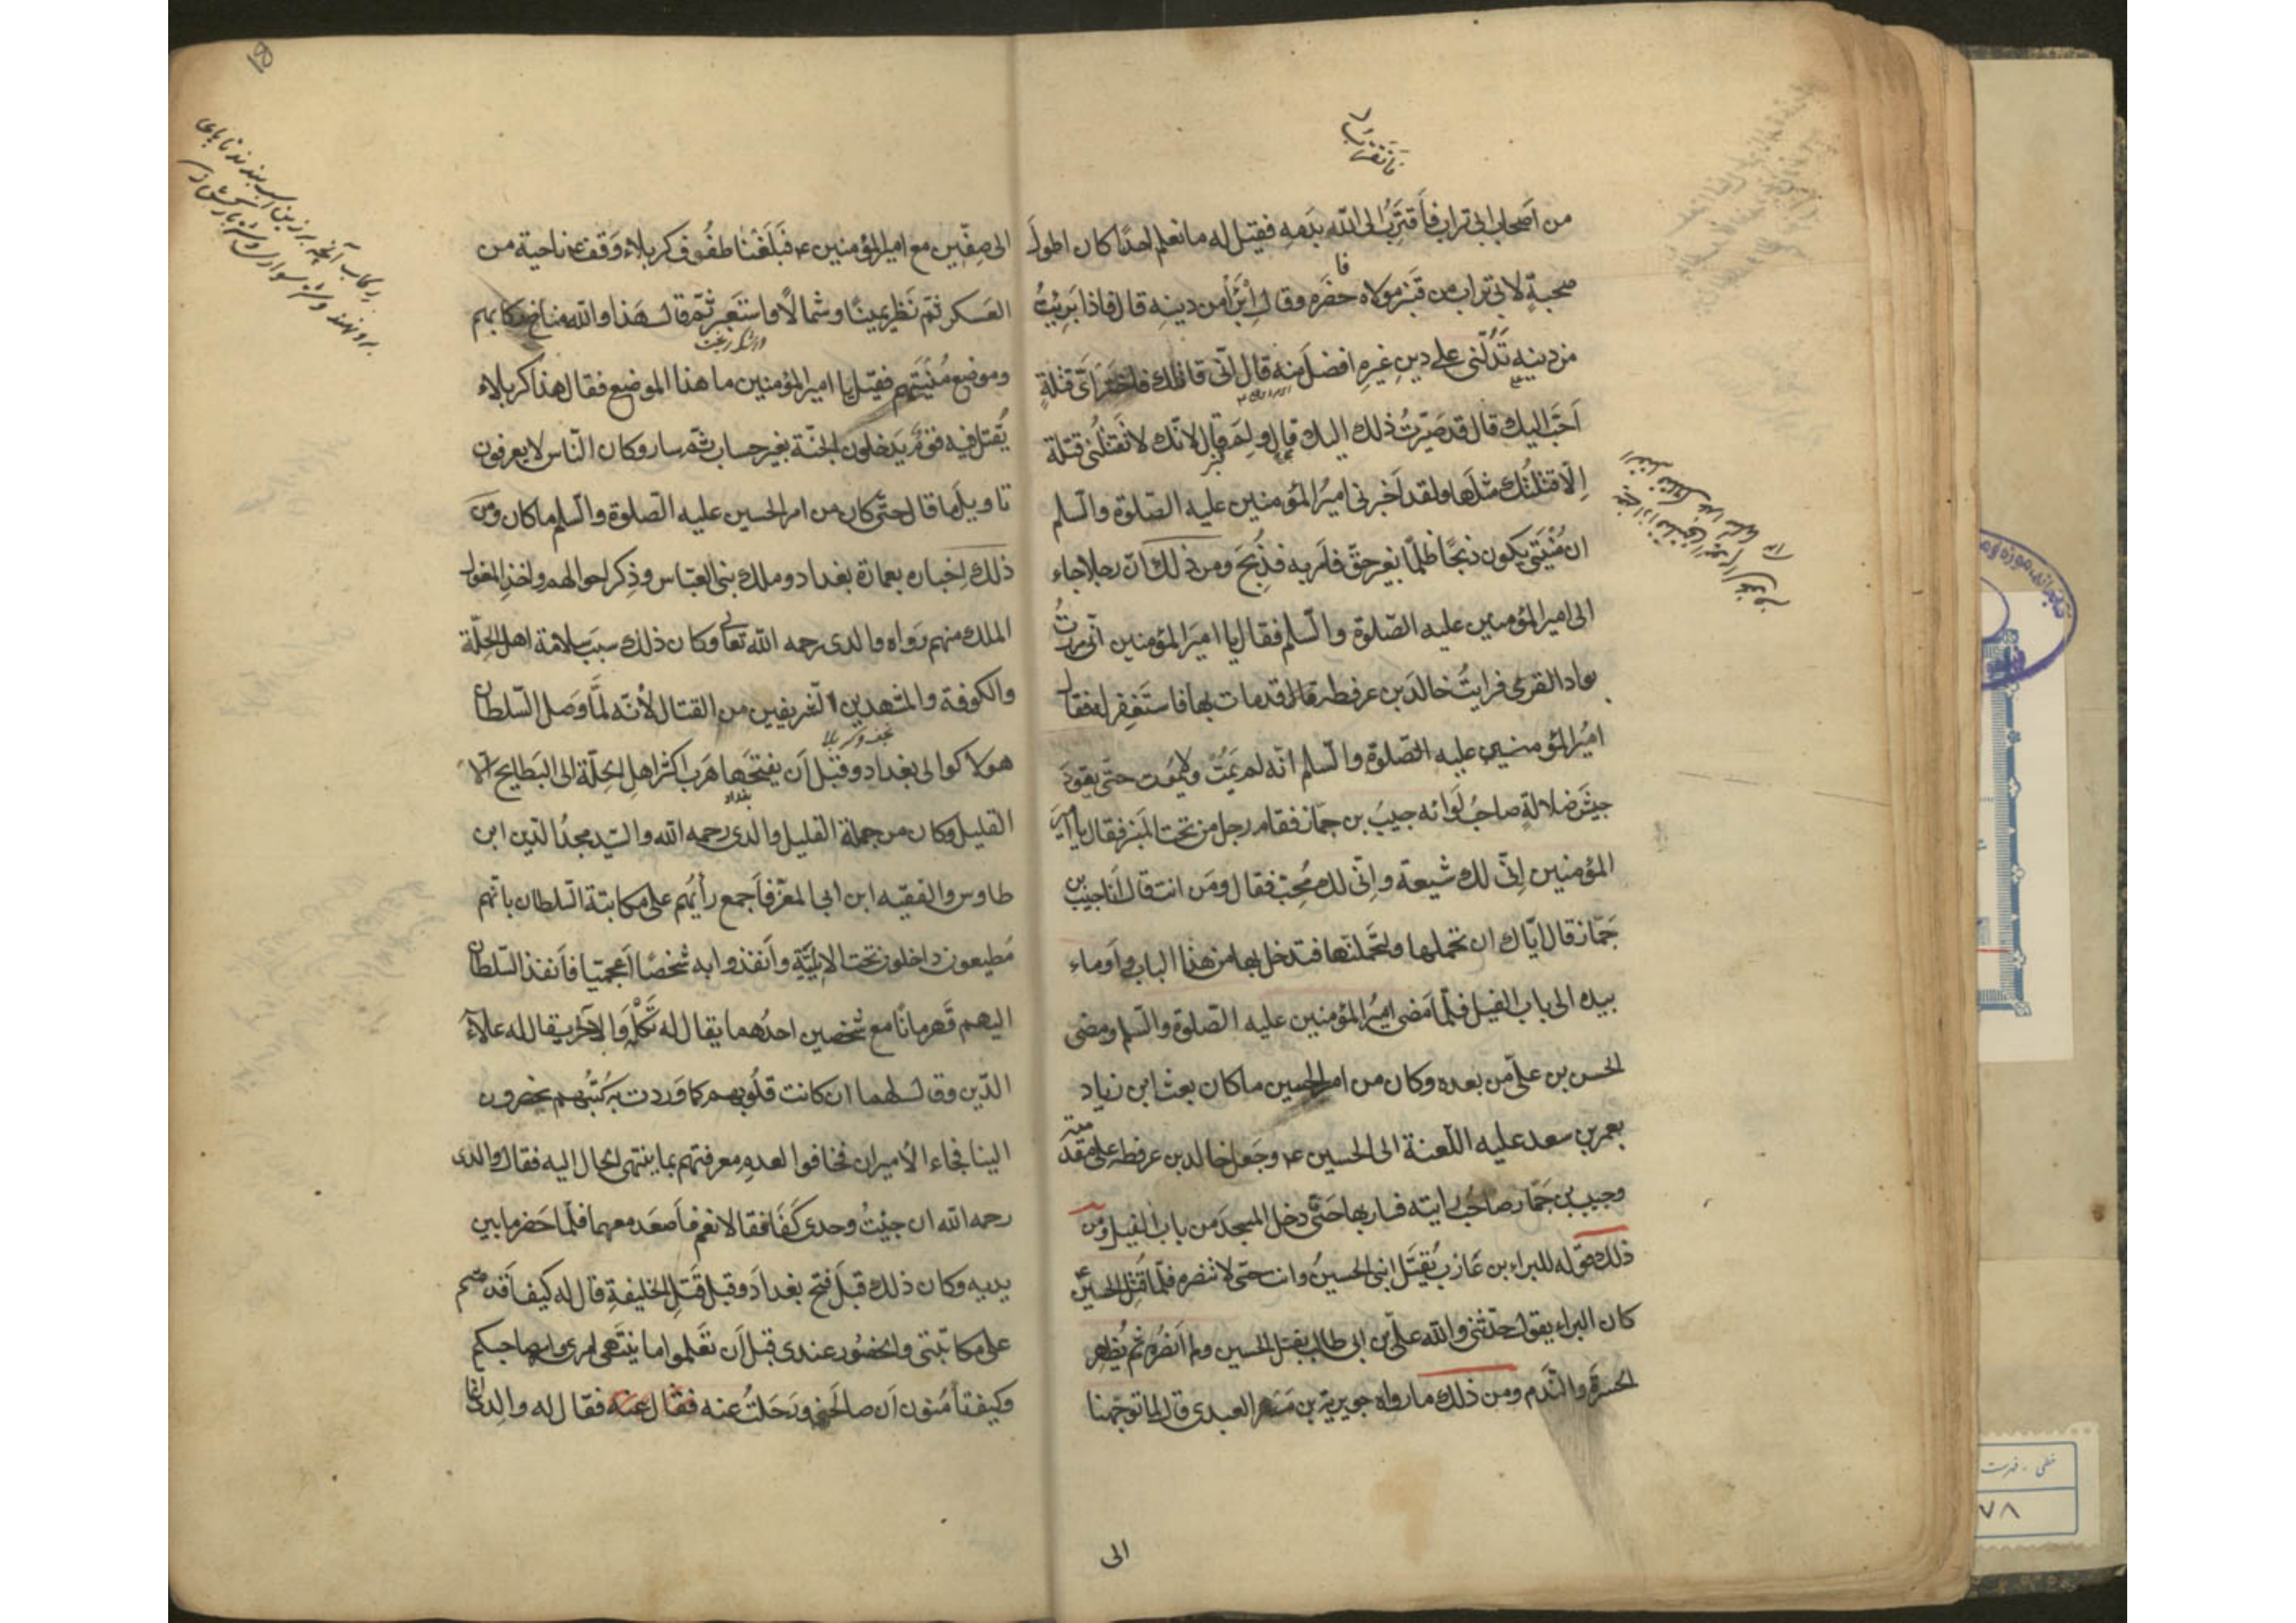 فاتقرب
من اصحاب ابى تراب فأقتَرِبُ الى الله بدَمهِ فقيل له ما نعلم احدًا كان اطولَ
صحبةٍ لابى تراب من قنبر مولاه فاحضَره وقال اِبْرَأ من دينهِ قال فاذا بَرِئتُ
من دينهِ تَدُلّنى على دينٍ غيرِهِ افضلَ منه قال انّى قاتلك فاختَر اَىَّ قتلةٍ
اَحَبّ اليك قال قد صَيّرتُ ذلك اليك قال ولِمَ قال لانّك لا تقتلُنى قتلة
اِلّا قتلتُك مثلَها ولقد اَخبرنى اميرُ المؤمنين عليه الصّلوة والسّلم
ان مُنْيَتى يكون ذبحًا ظلمًا بغير حقّ فامر به فذُبِحَ ومن ذلك انّ رجلا جاء
الى امير المؤمنين عليه الصّلوة والسّلم فقال يا اميرَ المؤمنين انّى مررتُ
بواد القرى فرايتُ خالدَ بن عرفطه قال قد مات بها فاستَغفِر له فقال
اميرُ المؤمنين عليه الصّلوة والسّلم انّه لم يَمُت ولا يموت حتّى يقودَ
جيشَ ضلالةٍ صاحبُ لَوائه حبيبُ بن جمّاز فقام رجل من تحت المنبر فقال يا امير
المؤمنين اِنّى لك شيعة واِنّى لك مُحِبّ فقال ومَن انت قال اَنا حبيب بن
جَمّاز قال ايّاك ان تحملها ولتَحملنّها فتدخل بها من هذا الباب واَوماء
بيده الى باب الفيل فلمّا مَضى اميرُ المؤمنين عليه الصّلوة والسّلم ومضى
الحسن بن علىّ من بعده وكان من امر الحسين ما كان بعث ابن زياد
بعمر بن سعد عليه اللّعنة الى الحسين ع وجَعل خالد بن عرفطه على مقدّمته
وحبيب بن جَمّاز صاحبُ رايته فسار بها حَتّى دخل المسجدَ من باب الفيل ومن
ذلك قوله للبراء بن عَازب يُقتَل ابنى الحسينُ وانت حىّ لا تنصره فلمّا قُتِل الحسينُ ع
كان البراء يقول حدّثنى والله علىّ بن ابى طالب بقتل الحسين ولم اَنصُره ثم يُظهِر
الحسرة والنّدم ومن ذلك ما رواه جويرية بن مسهر العبدى قال لمّا توجّهنا
الى
الى صِفّين مع امير المؤمنين ع فبَلَغْنا طفُوف كربلاء وَقف ع ناحية من
العَسكر ثمّ نَظر يمينًا وشمالًا واستَعبَر ثمّ قال هَذا والله مناخ ركابهم
وموضع مُنْيَتِهم فقيل يا امير المؤمنين ما هذا الموضع فقال هذا كربلاء
يُقتل فيه قومٌ يَدخلون الجنّة بغير حساب ثمّ سار وكان النّاس لا يعرفون
تاويل ما قال حتّى كان من امر الحسين عليه الصّلوة والسّلم ما كان ومن
ذلك اِخباره بعمارة بغداد وملك بنى العبّاس وذِكر احوالهم واخذ المغول
الملك منهم رَواه والدى رحمه الله تعالى وكان ذلك سببَ سلامة اهل الحِلّة
والكوفة والمشهدين الشّريفين من القتال لأنّه لمَّا وَصل السّلطان
نجف وكربلا
هولاكوا الى بغداد وقبل اَن يفتحَها هَرب اكثر اهلِ الحِلّة الى البَطايح اِلّا
بغداد
القليل وكان من جملة القليل والدى رحمه الله والسّيد مجدُ الدّين ابن
طاوس والفقيه ابن ابى المعزّ فأجمع رأيُهم على مكاتبة السّلطان بانّهم
مُطيعون داخلون تحت الايليّة واَنفذوا به شخصًا اَعجميّا فاَنفذ السّلطان
اليهم قَهرمانًا مع شخصين احدُهما يقال له تَكْلَه والآخر يقال له علاء
الدّين وقال لهما ان كانت قلُوبهم كما وَردت به كُتبُهم يحضرون
الينا فجاء الأميران فخافوا لعدم معرفتهم بما ينتهى الحال اليه فقال والدى
رحمه الله ان جِئتُ وحدى كَفَا فقالا نعم فأصعَد معهما فلمّا حَضر ما بين
يديه وكان ذلك قبلَ فتح بغدادَ وقبل قَتلِ الخليفةِ قال له كيف اَقدمتم
على مكاتبتى والحضُور عندى قبل اَن تعلموا ما يَنتَهى امرى وامر صاحبكم
وكيف تأمَنون اَن صالحَنى ورَحَلتُ عنه فقال له والدى
ركاب آنچه بر زين اسب بندند تا پاى
برو نهند
خطى - فهرست
٧٨